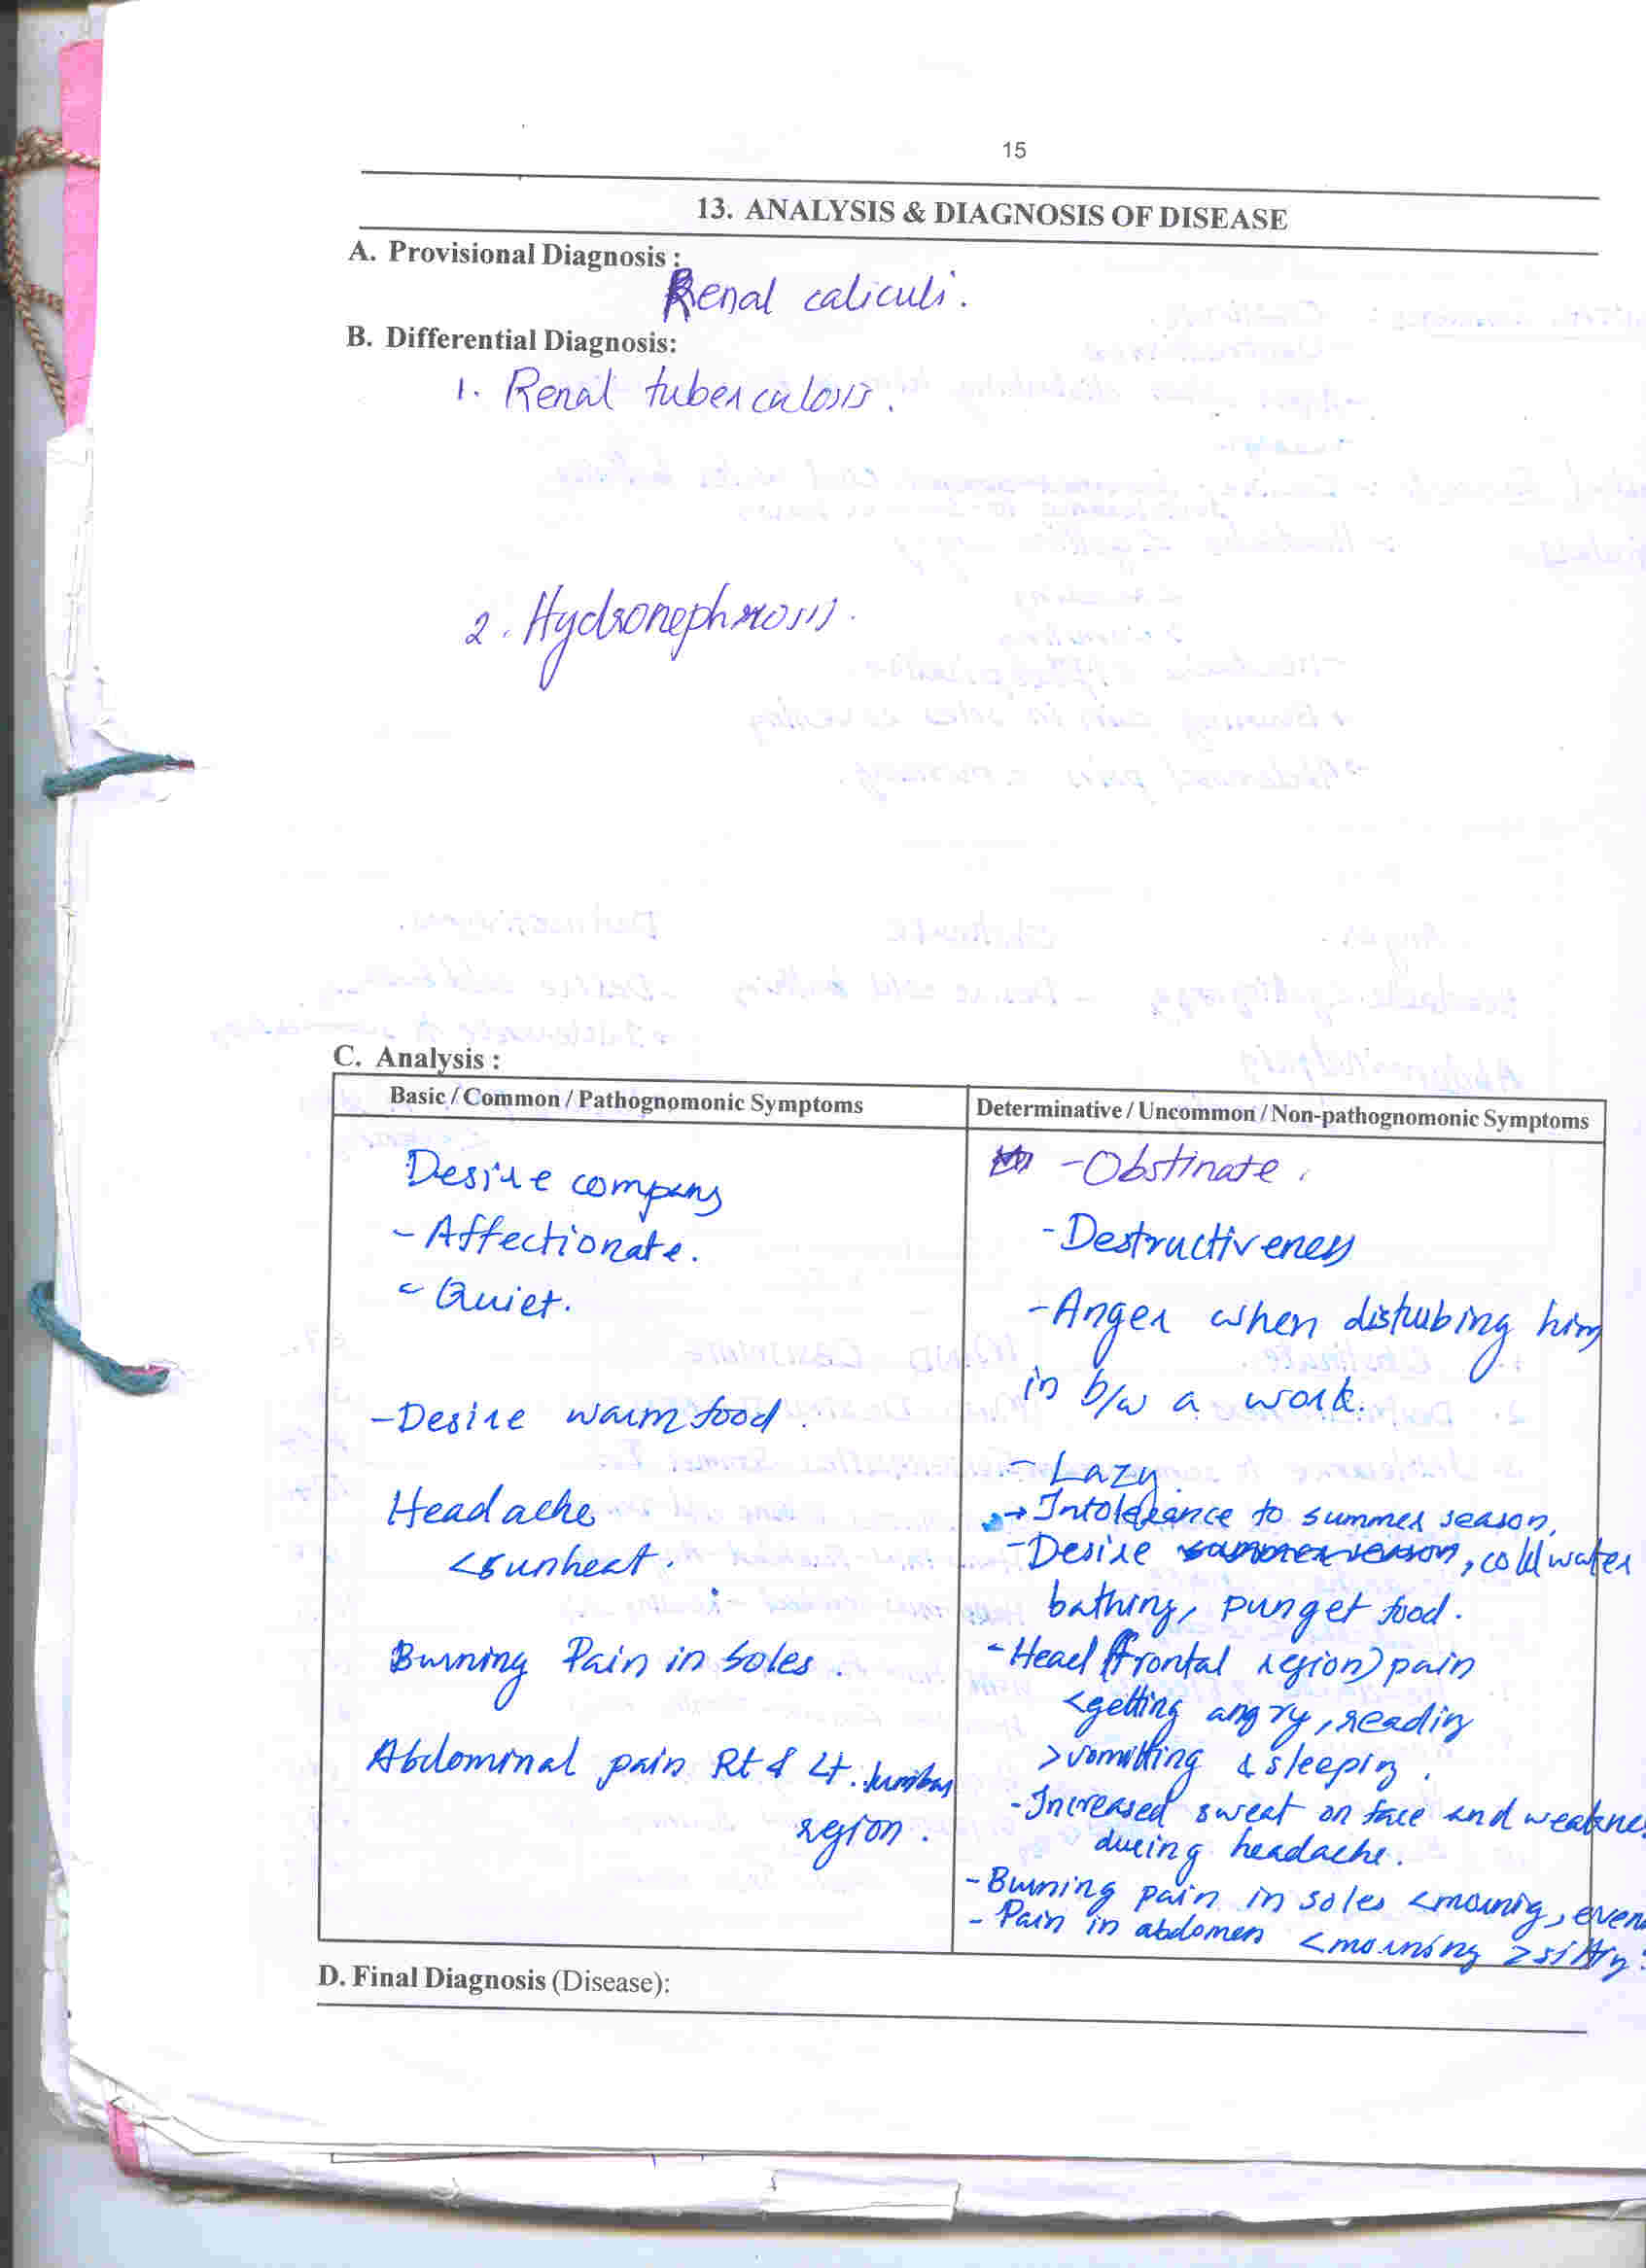 15
13. ANALYSIS & DIAGNOSIS OF DISEASE
A. Provisional Diagnosis :
Renal caliculi.
B. Differential Diagnosis:
1. Renal tuberculosis.
2. Hydronephrosis.
C. Analysis :
Basic / Common / Pathognomonic Symptoms
Desire company
- Affectionate.
- Quiet.
- Desire warm food.
Headache
<sunheat.
Burning Pain in soles.
Abdominal pain Rt & Lt. lumbar
region.
Determinative / Uncommon / Non-pathognomonic Symptoms
- Obstinate.
- Destructiveness
- Anger when distubing him
in b/w a work.
- Lazy.
→ Intolerance to summer season.
- Desire summer season, cold water
bathing, punget food.
- Head (frontal region) pain
<getting angry, reading
>vomitting & sleeping.
- Increased sweat on face and weakne
during headache.
- Burning pain in soles <mornig, even
- Pain in abdomen <morning >sitting
D. Final Diagnosis (Disease):